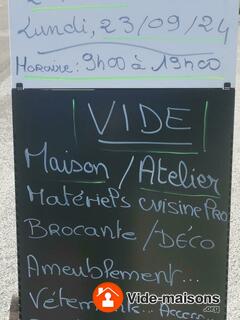 Lundi, 23/09/24
Horaire: 9h00 à 19h00
VIDE
Maison / Atelier
Matériels cuisine Pro
Brocante / Déco
Ameublement...
Vêtements...
Vide-maisons
.org